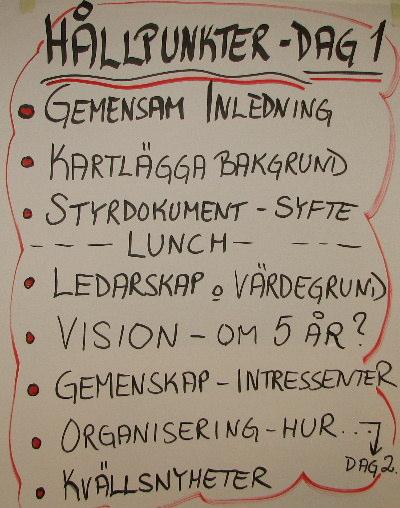 HÅLLPUNKTER - DAG 1
• GEMENSAM INLEDNING
• KARTLÄGGA BAKGRUND
• STYRDOKUMENT - SYFTE
- - - LUNCH - - - -
• LEDARSKAP o VÄRDEGRUND
• VISION - OM 5 ÅR?
• GEMENSKAP - INTRESSENTER
• ORGANISERING - HUR...
DAG 2.
• KVÄLLSNYHETER